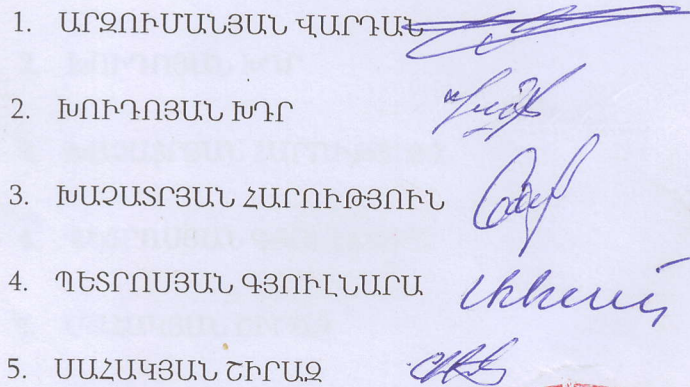 1. ԱՐԶՈՒՄԱՆՅԱՆ ՎԱՐԴԱՆ
2. ԽՈՒԴՈՅԱՆ ԽԴՐ
3. ԽԱՉԱՏՐՅԱՆ ՀԱՐՈՒԹՅՈՒՆ
4. ՊԵՏՐՈՍՅԱՆ ԳՅՈՒԼՆԱՐԱ
5. ՍԱՀԱԿՅԱՆ ՇԻՐԱԶ